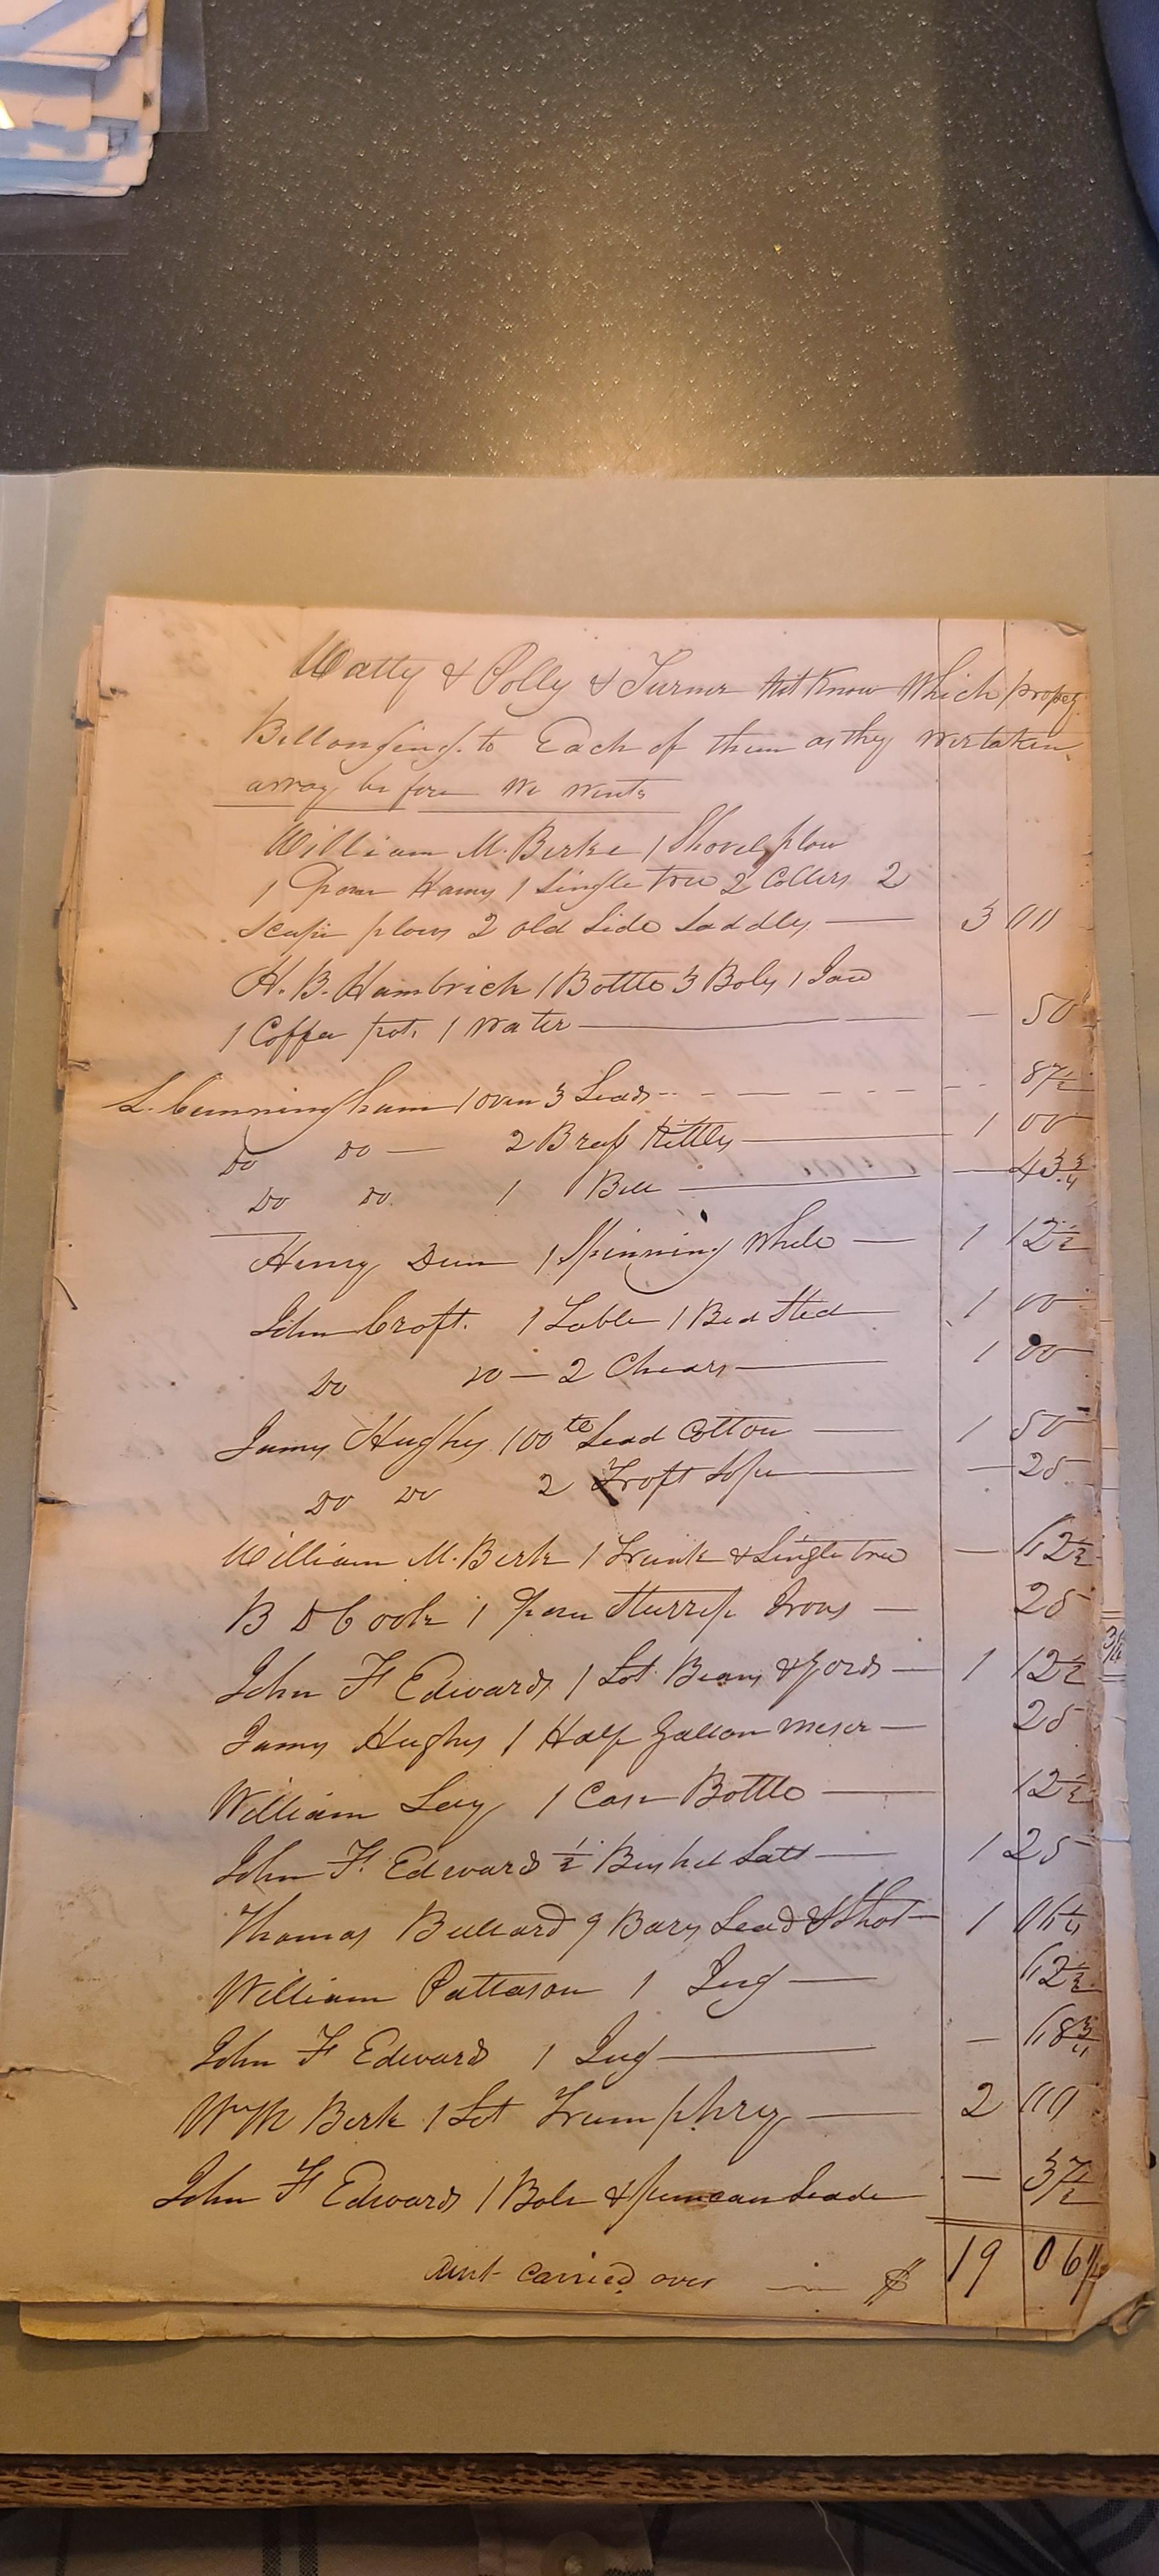 Watty & Polly & Turner Not Know Which propty
Bellonging to Each of them as they wertaken
away be fore We wents
William M. Berke 1 Shovel plow
1 Pare Hams 1 Single tree 2 Collers 2
scape plows 2 old Side Saddls — 3 00
H. B. Hambrick 1 Bottle 3 Bols 1 Jare
1 Coffee pot. 1 water — — 50
L. Cunningham 1 oven 3 Leads - - - - 87½
Do Do — 2 Brass Kittles — 1 00
Do Do. 1 Bell — — 43¾
Henry Dunn 1 Spinning While — 1 12½
John Croft. 1 Table 1 Bed Sted 1 00
Do Do — 2 Chears — 1 00
Jams Hughs 100 te Sead Cotton — 1 50
Do Do 2 — — 25
William M. Berk 1 Trunk & Singletree — 12½
B D Cook 1 Pare Sturrip Irons — 25
John F Edwards 1 Lot Beans & Gords — 1 12½
Jams Hughs 1 Half Gallon meser — 25
William Lay 1 Case Bottle — 12½
John F. Edwards ½ Bushel Salt — 1 25
Thomas Bulliard 9 Bars Lead & Shot — 1 06¼
William Pattason 1 Jug — 12½
John F Edwards 1 Jug — — 18¾
Wm M Berk 1 Lot Trumphrey — 2 00
John F Edwards 1 Bole & — 37½
Amt carried over — $ 19 06¼